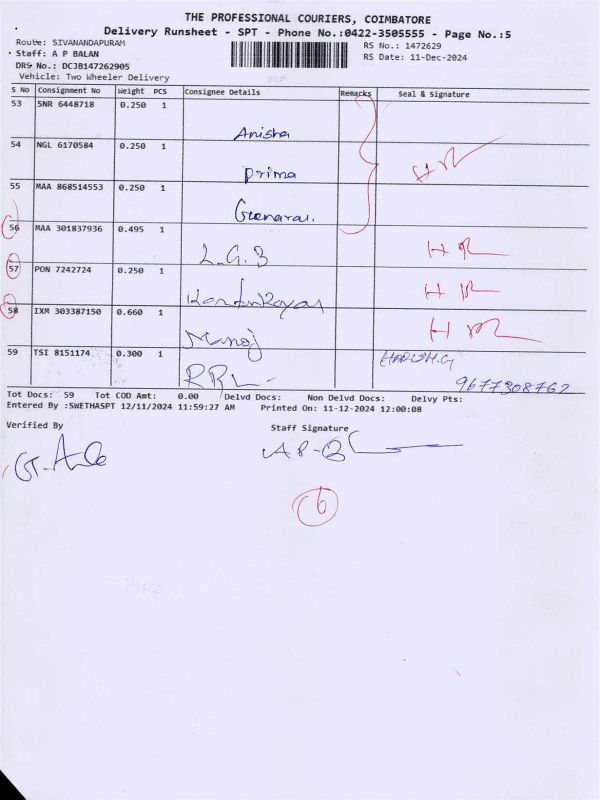 THE PROFESSIONAL COURIERS, COIMBATORE
Delivery Runsheet - SPT - Phone No.:0422-3505555 - Page No.:5
Route: SIVANANDAPURAM
RS No.: 1472629
Staff: A P BALAN
RS Date: 11-Dec-2024
DRS No.: DCJB147262905
Vehicle: Two Wheeler Delivery
S No Consignment No Weight PCS Consignee Details Remarks Seal & Signature
53 SNR 6448718 0.250 1
Anisha
54 NGL 6170584 0.250 1
Prima
H R
55 MAA 868514553 0.250 1
56 MAA 301837936 0.495 1
L.G.B H R
57 PON 7242724 0.250 1
H R
58 IXM 303387150 0.660 1
Manoj H R
59 TSI 8151174 0.300 1
HARISH.G
RRL- 9677308762
Tot Docs: 59 Tot COD Amt: 0.00 Delvd Docs: Non Delvd Docs: Delvy Pts:
Entered By :SWETHASPT 12/11/2024 11:59:27 AM Printed On: 11-12-2024 12:00:08
Verified By Staff Signature
6